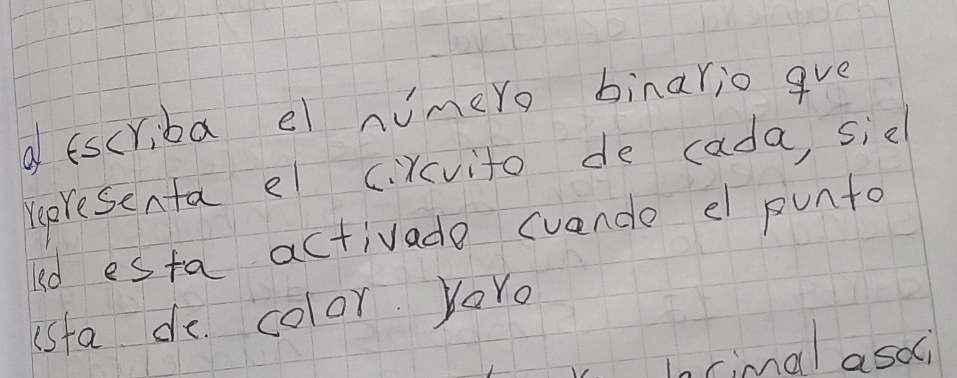 a) Escriba el número binario que
representa el circuito de cada, si el
led esta activado cuando el punto
esta de. color.
decimal asoci